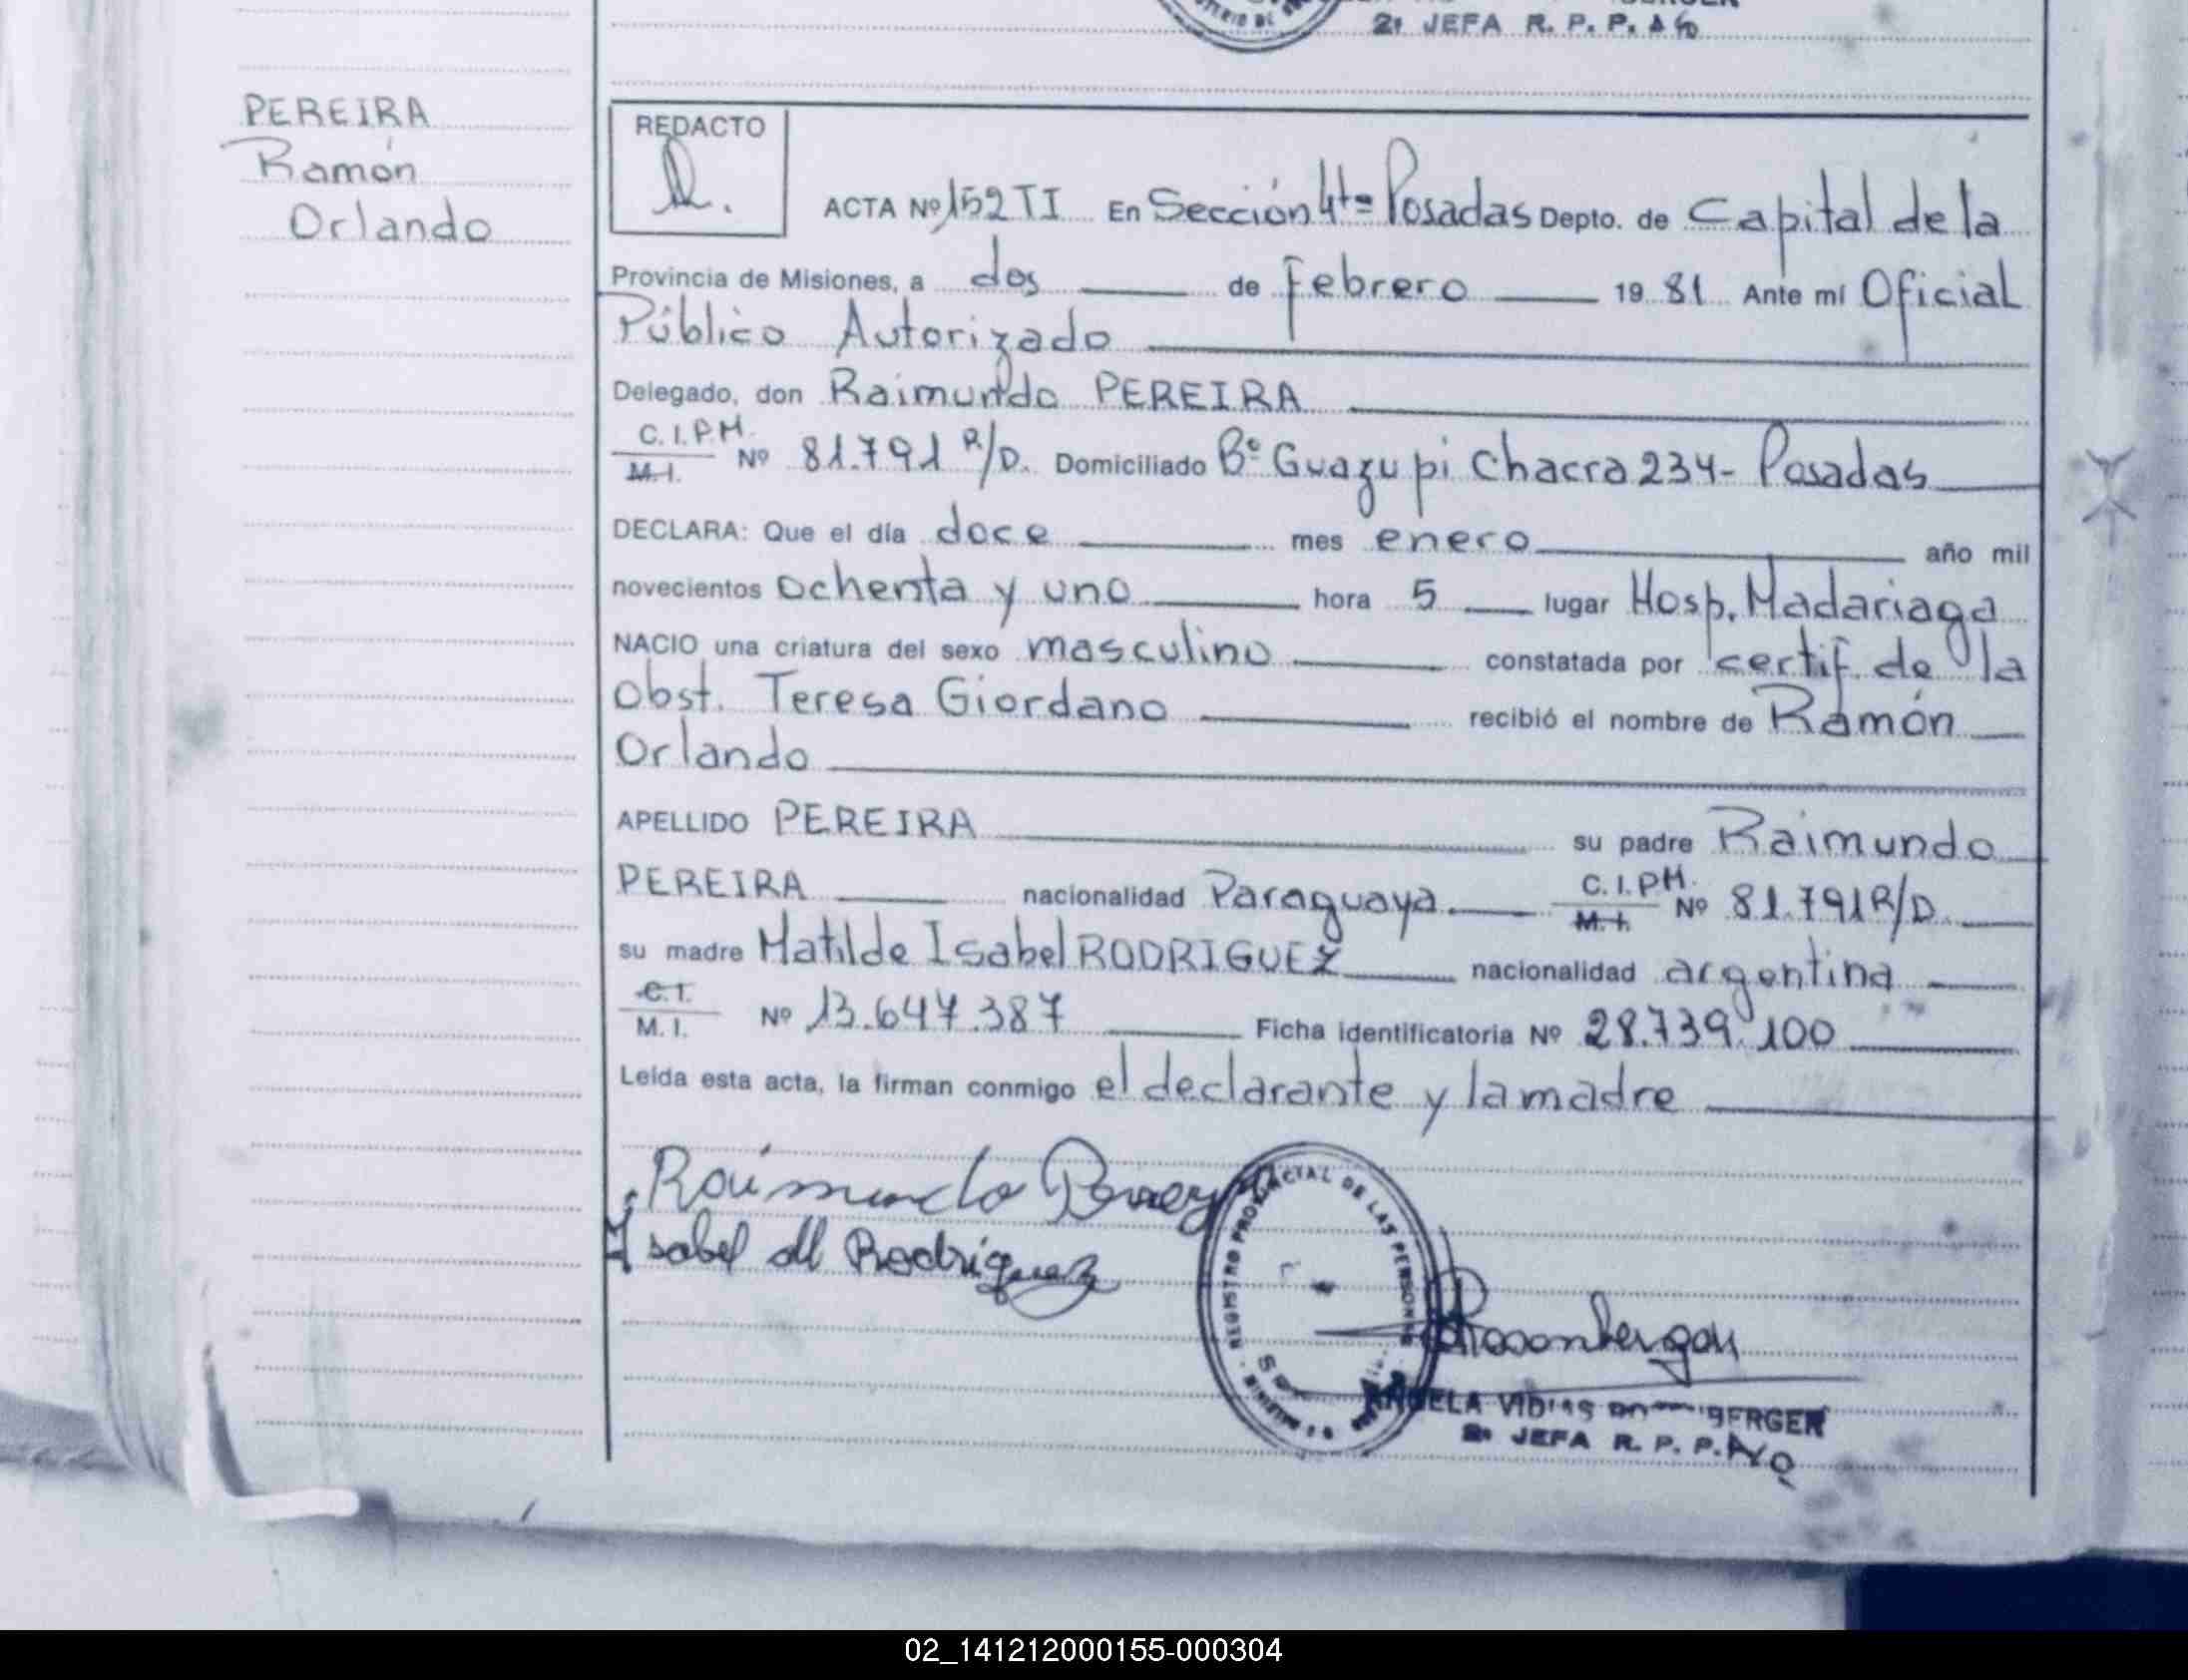 2ª JEFA R. P. P.
PEREIRA
Ramón
Orlando
REDACTO
ACTA Nº 152 TI En Sección 4ta Posadas Depto. de Capital de la
Provincia de Misiones, a dos de febrero 19 81 Ante mí Oficial
Público Autorizado
Delegado, don Raimundo PEREIRA
C.I.P.M.
M.I. Nº 81.791 R/D. Domiciliado Bº Guazupi Chacra 234- Posadas
DECLARA: Que el día doce mes enero año mil
novecientos ochenta y uno hora 5 lugar Hosp. Madariaga
NACIO una criatura del sexo masculino constatada por certif. de la
Obst. Teresa Giordano recibió el nombre de Ramón
Orlando
APELLIDO PEREIRA su padre Raimundo
PEREIRA nacionalidad Paraguaya C.I.PM.
M.I. Nº 81.791 R/D.
su madre Matilde Isabel RODRIGUEZ nacionalidad argentina
C.I.
M.I. Nº 13.647.387 Ficha identificatoria Nº 28.739.100
Leída esta acta, la firman conmigo el declarante y la madre
Raimundo
Isabel M Rodriguez
REGISTRO PROVINCIAL DE LAS PERSONAS
BERGER
2ª JEFA R. P. P.
02_141212000155-000304